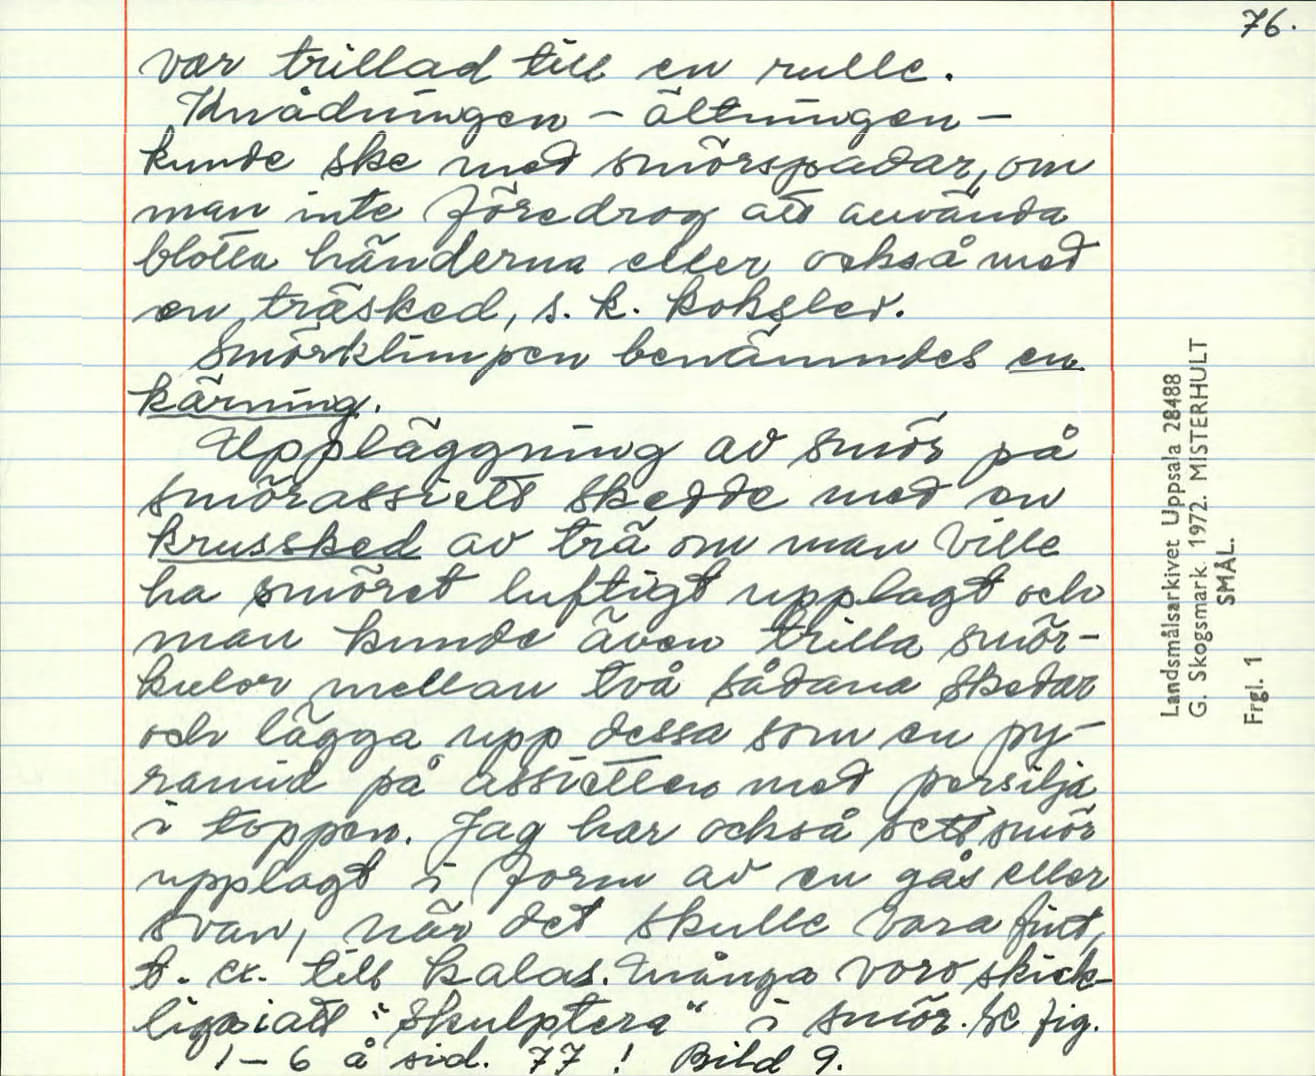 76.
var trillad till en rulle.
Knådningen – ältningen –
kunde ske med smörspadar, om
man inte föredrog att använda
blotta händerna eller också med
en träsked, s. k. kokslev.
Smörklimpen benämndes en
kärning.
Uppläggning av smör på
smörassiett skedde med en
krussked av trä om man ville
ha smöret luftigt upplagt och
man kunde även trilla smör-
kulor mellan två sådana skedar
och lägga upp dessa som en py-
ramid på assietten med persilja
i toppen. Jag har också sett smör
upplagt i form av en gås eller
svan, när det skulle vara fint,
t. ex. till kalas. Många voro skick-
liga i att "skulptera" i smör. Se fig.
1–6 å sid. 77! Bild 9.
Landsmålsarkivet Uppsala 28488
G. Skogsmark. 1972. MISTERHULT
SMÅL.
Frgl. 1